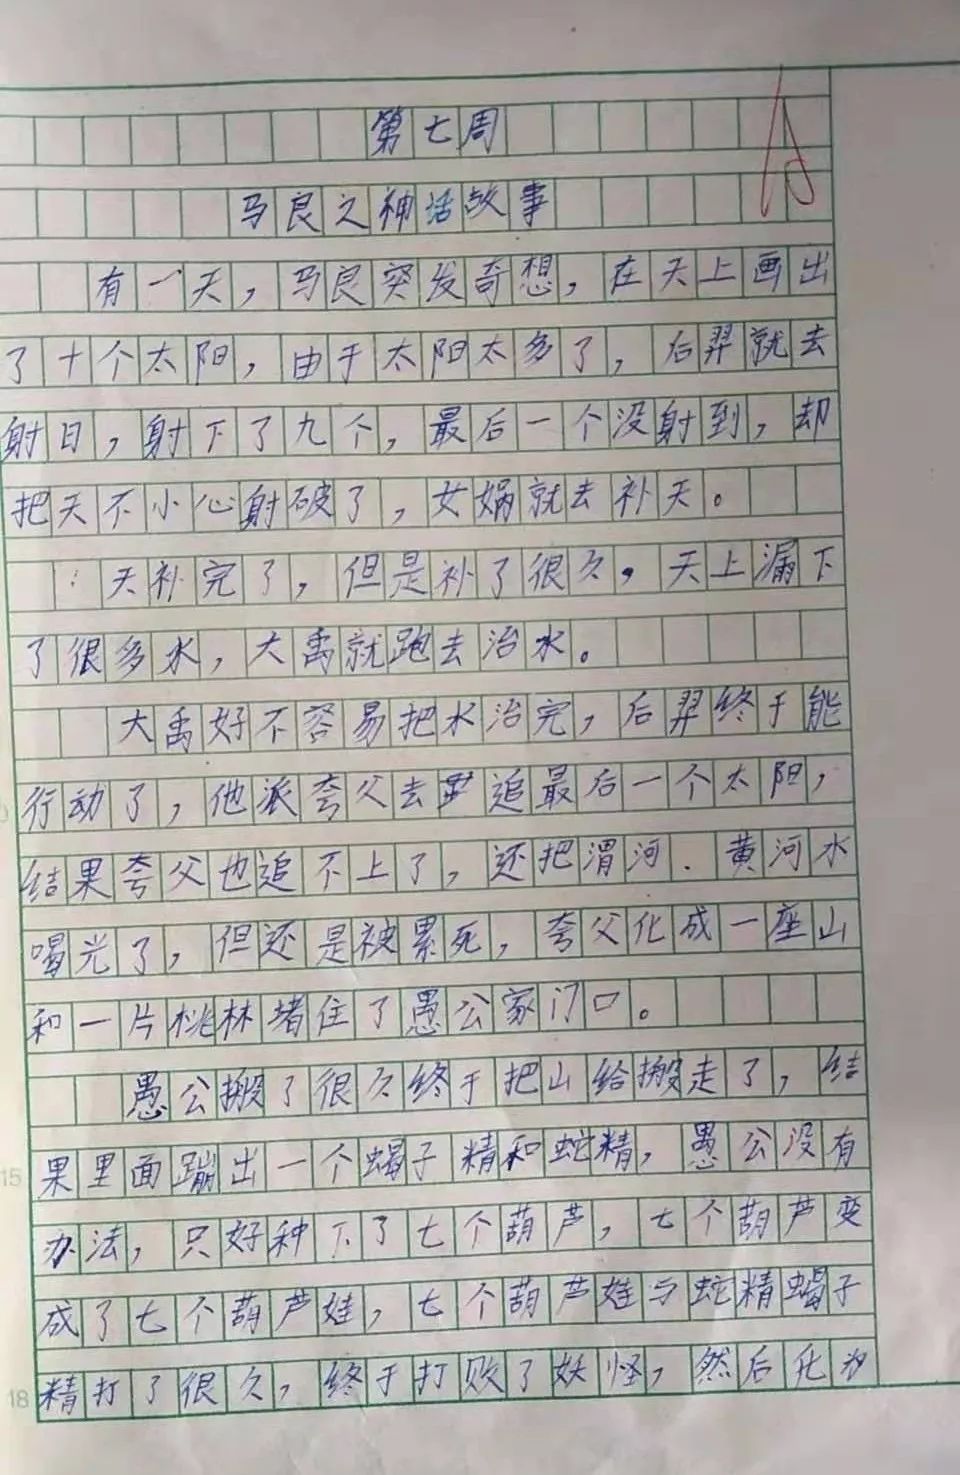 第七周
马良之神话故事
有一天，马良突发奇想，在天上画出
了十个太阳，由于太阳太多了，后羿就去
射日，射下了九个，最后一个没射到，却
把天不小心射破了，女娲就去补天。
天补完了，但是补了很久，天上漏下
了很多水，大禹就跑去治水。
大禹好不容易把水治完，后羿终于能
行动了，他派夸父去追最后一个太阳，
结果夸父也追不上了，还把渭河．黄河水
喝光了，但还是被累死，夸父化成一座山
和一片桃林堵住了愚公家门口。
愚公搬了很久终于把山给搬走了，结
15 果里面蹦出一个蝎子精和蛇精，愚公没有
办法，只好种下了七个葫芦，七个葫芦变
成了七个葫芦娃，七个葫芦娃与蛇精蝎子
18 精打了很久，终于打败了妖怪，然后化为